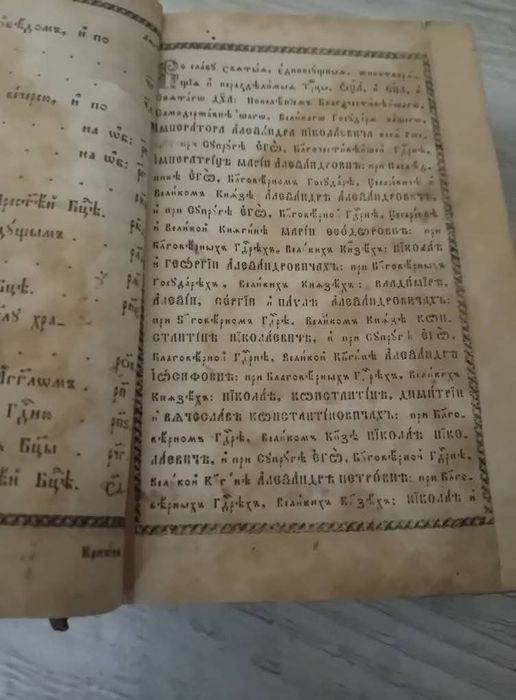 вѣдомъ, и҆ по
вечерю, и҆ по
на ѡ҆в:
на ѡ҆в:
Бц҃ѣ.
Бц҃ѣ.
Гдⷭ҇ню
Бц҃ы
Бц҃ѣ.
Во славу свѧтыѧ, є҆диносущныѧ, животворѧ-
щїѧ и҆ нераздѣлимыѧ Трⷪ҇цы, Ѻ҆ц҃а̀, и҆ Сн҃а, и҆
Свѧтагѡ Дх҃а: Повелѣнїемъ Благочестивѣйшагѡ,
Самодержавнѣйшагѡ, Великагѡ Государѧ нашегѡ,
І҆МПЕРАТОРА А҆ЛЕѮАНДРА НІКОЛАЕВИЧА всеѧ Рѡс-
сїи: при Супругѣ Є҆ГѠ̀, Благочестивѣйшей Гдⷭ҇рнѣ,
І҆МПЕРАТРИЦѢ МАРІИ А҆ЛЕѮАНДРОВНѢ: при Наслѣд-
никѣ Є҆ГѠ̀, Благовѣрномъ Государѣ, Цесаревичѣ и҆
Великомъ Кнѧзѣ А҆ЛЕѮАНДРѢ А҆ЛЕѮАНДРОВИЧѢ,
и҆ при Супругѣ Є҆ГѠ̀, Благовѣрной Гдⷭ҇рнѣ, Цесаревнѣ
и҆ Великой Кнѧгинѣ МАРІИ ѲЕОДѠРОВНѢ: при
Благовѣрныхъ Гдⷭ҇рѣхъ, Великихъ Кнзⷤѣхъ: НІКОЛАѢ
и҆ ГЕѠРГІИ А҆ЛЕѮАНДРОВИЧАХЪ: при Благовѣрныхъ
Государѣхъ, Великихъ Кнѧзѣхъ: ВЛАДИМІРѢ,
А҆ЛЕѮІИ, СЕРГІИ и҆ ПАѴЛѢ А҆ЛЕѮАНДРОВИЧАХЪ:
при Благовѣрномъ Гдⷭ҇рѣ, Великомъ Кнѧзѣ КѠН-
СТАНТІНѢ НІКОЛАЕВИЧѢ, и҆ при Супругѣ Є҆ГѠ̀,
Благовѣрной Гдⷭ҇рнѣ, Великой Кнѧгинѣ А҆ЛЕѮАНДРѢ
І҆ѠСИФОВНѢ: при Благовѣрныхъ Гдⷭ҇рѣхъ, Великихъ
Кнѧзѣхъ: НІКОЛАѢ, КѠНСТАНТІНѢ, ДИМИТРІИ
и҆ ВѦЧЕСЛАВѢ КѠНСТАНТІНОВИЧАХЪ: при Благо-
вѣрномъ Гдⷭ҇рѣ, Великомъ Кнзⷤѣ НІКОЛАѢ НІКО-
ЛАЕВИЧѢ, и҆ при Супругѣ Є҆ГѠ̀, Благовѣрной Гдⷭ҇рнѣ,
Великой Кнѧгинѣ А҆ЛЕѮАНДРѢ ПЕТРОВНѢ: при Благо-
вѣрныхъ Гдⷭ҇рѣхъ, Великихъ Кнзⷤѣхъ: НІКОЛАѢ и҆